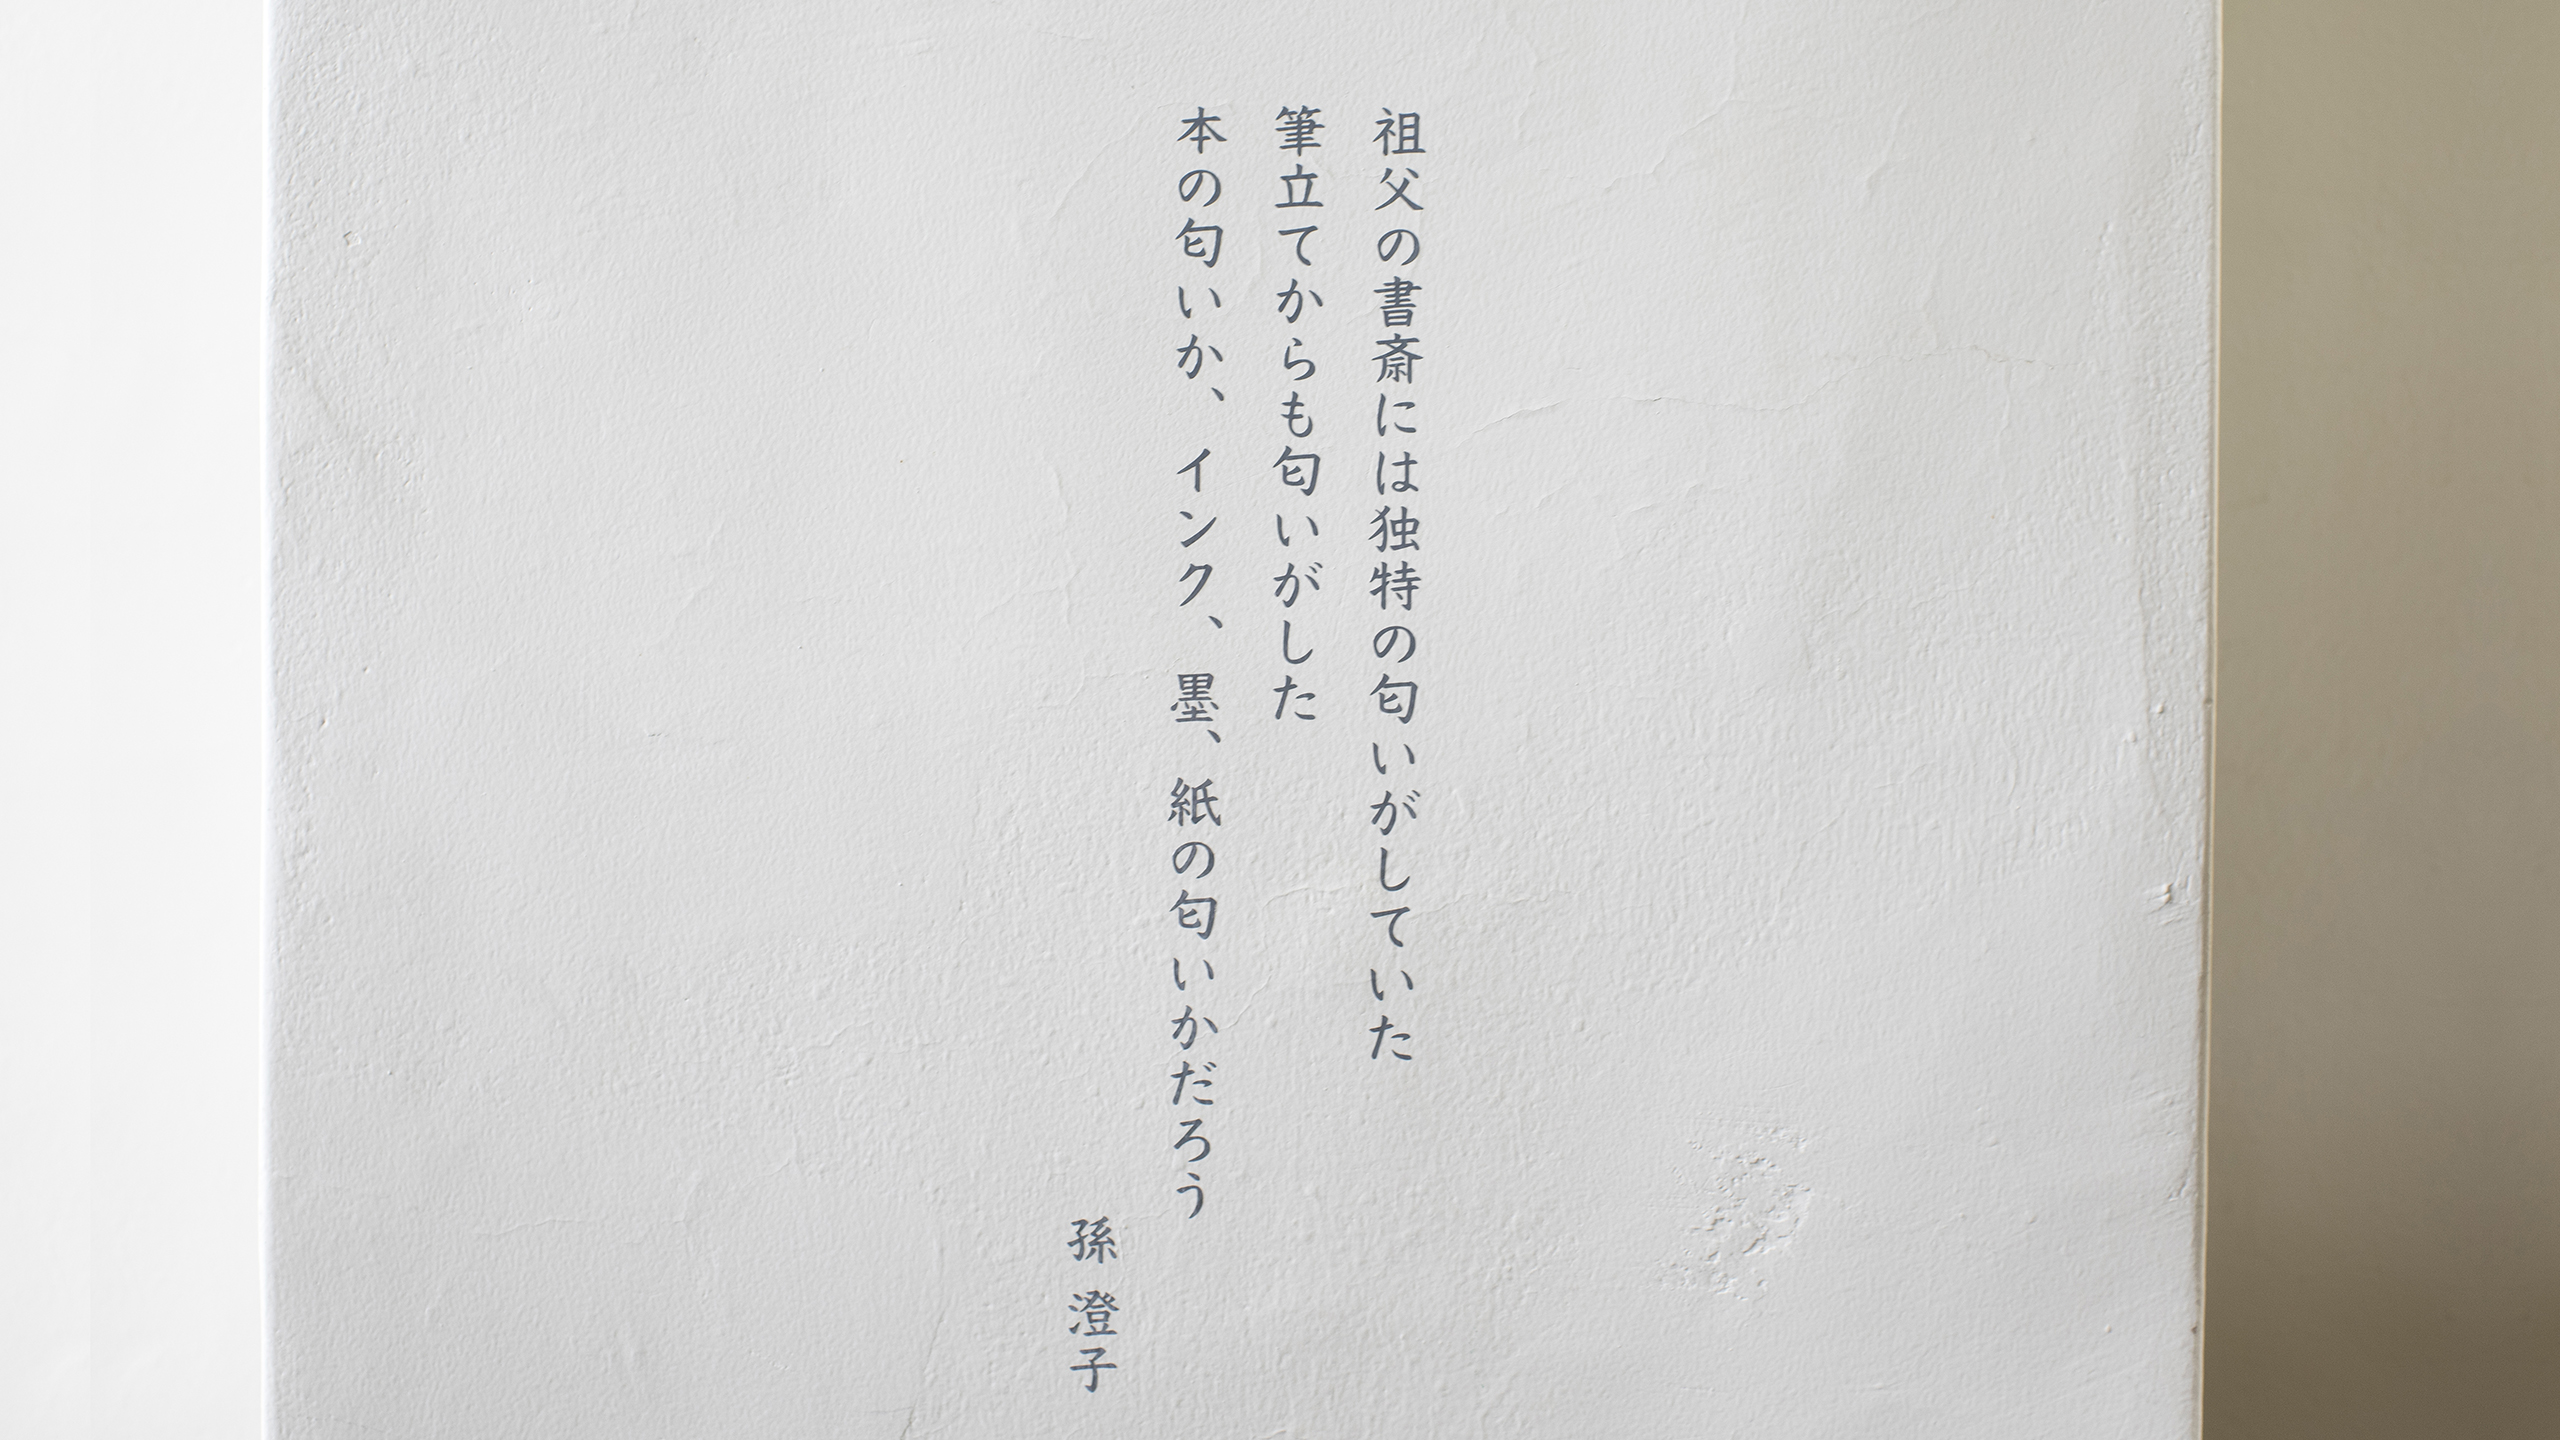 祖父の書斎には独特の匂いがしていた
筆立てからも匂いがした
本の匂いか、インク、墨、紙の匂いかだろう
孫 澄子